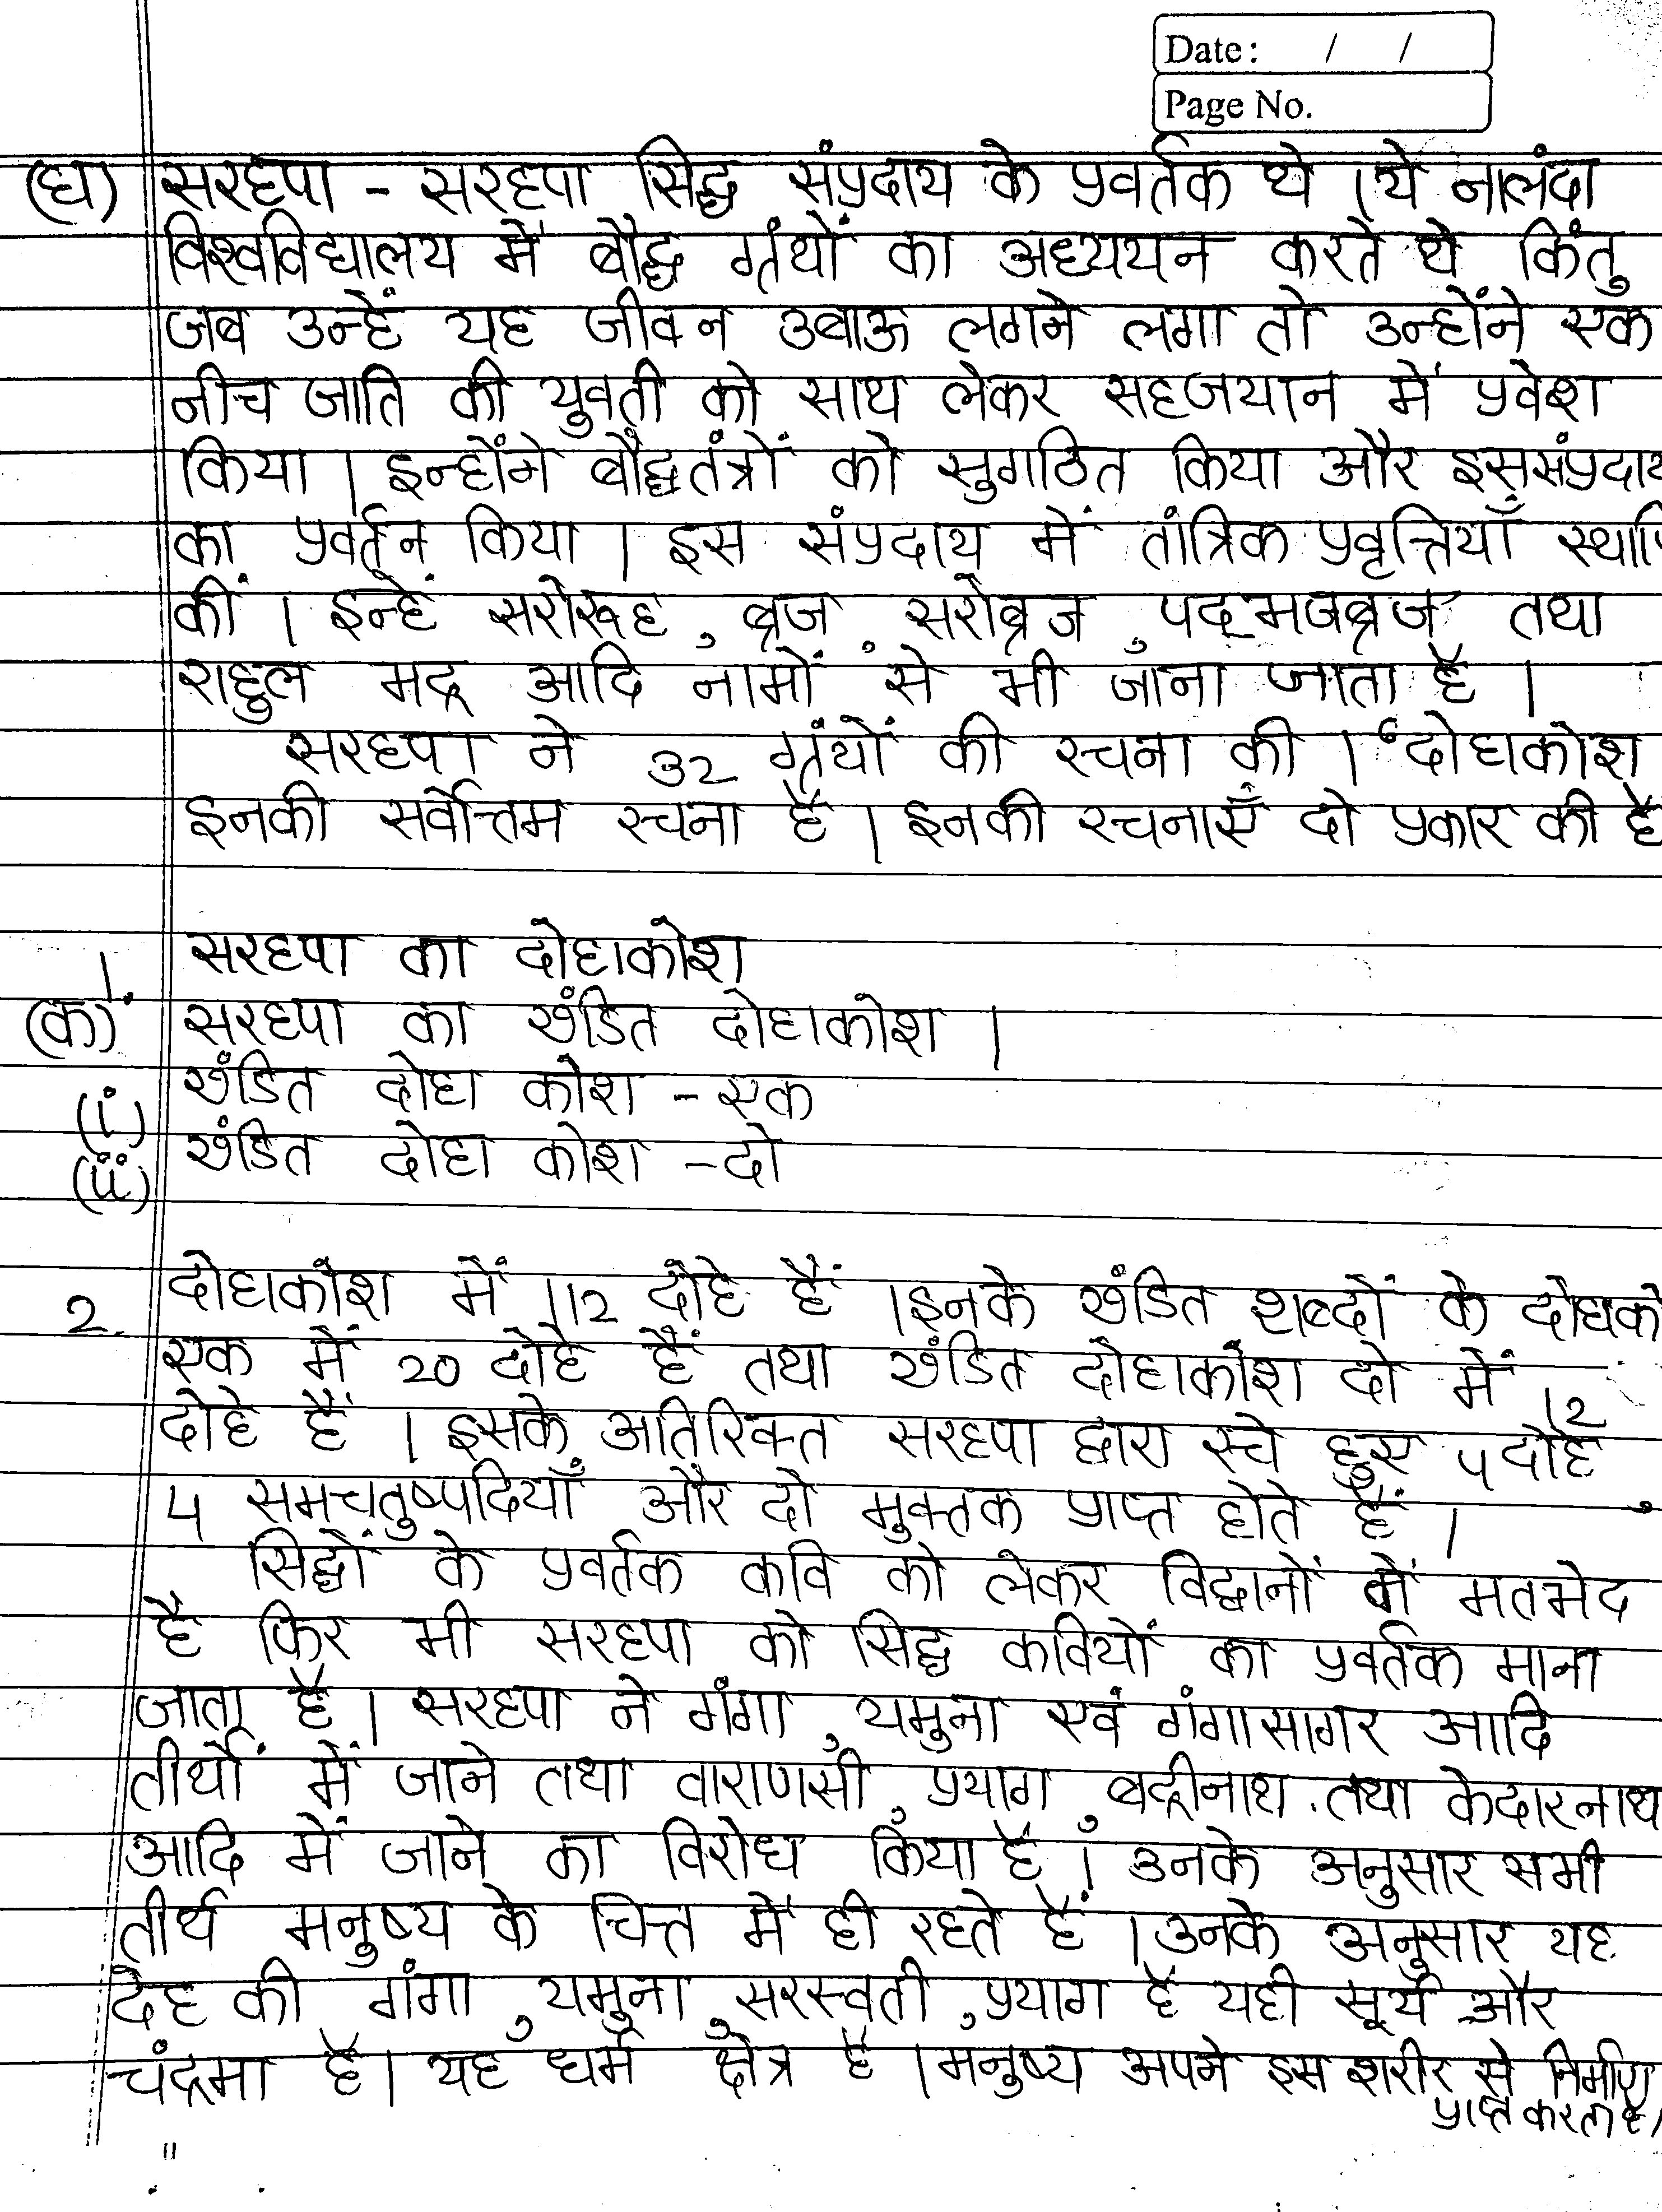 Date: / /
Page No.
(घ) सरहपा - सरहपा सिद्ध संप्रदाय के प्रवर्तक थे । ये नालंदा
विश्वविद्यालय में बौद्ध ग्रंथों का अध्ययन करते थे किंतु
जब उन्हें यह जीवन उबाऊ लगने लगा तो उन्होंने एक
नीच जाति की युवती को साथ लेकर सहजयान में प्रवेश
किया । इन्होंने बौद्धतंत्रों को सुगठित किया और इस संप्रदाय
का प्रवर्तन किया । इस संप्रदाय में तांत्रिक प्रवृत्तियाँ स्थापि
कीं । इन्हें सरोरूह , ब्रज , सरोब्रज , पद्मजब्रज तथा
राहुल भद्र आदि नामों से भी जाना जाता है ।
सरहपा ने 32 ग्रंथों की रचना की । 'दोहाकोश
इनकी सर्वोत्तम रचना है । इनकी रचनाएँ दो प्रकार की है
1. सरहपा का दोहाकोश
(क) सरहपा का खंडित दोहाकोश ।
(i) खंडित दोहा कोश - एक
(ii) खंडित दोहा कोश - दो
2. दोहाकोश में 112 दोहे हैं । इनके खंडित शब्दों के दोहाको
एक में 20 दोहे हैं तथा खंडित दोहाकोश दो में 12
दोहे हैं । इसके अतिरिक्त सरहपा द्वारा रचे हुए 4 दोहे ,
4 समचतुष्पदियाँ और दो मुक्तक प्राप्त होते हैं ।
सिद्धों के प्रवर्तक कवि को लेकर विद्वानों में मतभेद
है फिर भी सरहपा को सिद्ध कवियों का प्रवर्तक माना
जाता है । सरहपा ने गंगा , यमुना एवं गंगासागर आदि
तीर्थों में जाने तथा वाराणसी , प्रयाग , बद्रीनाथ तथा केदारनाथ
आदि में जाने का विरोध किया है । उनके अनुसार सभी
तीर्थ मनुष्य के चित्त में ही रहते हैं । उनके अनुसार यह
देह की गंगा , यमुना , सरस्वती , प्रयाग है यही सूर्य और
चंद्रमा है । यह धर्म क्षेत्र है । मनुष्य अपने इस शरीर से निर्माण
प्राप्त करता है ।